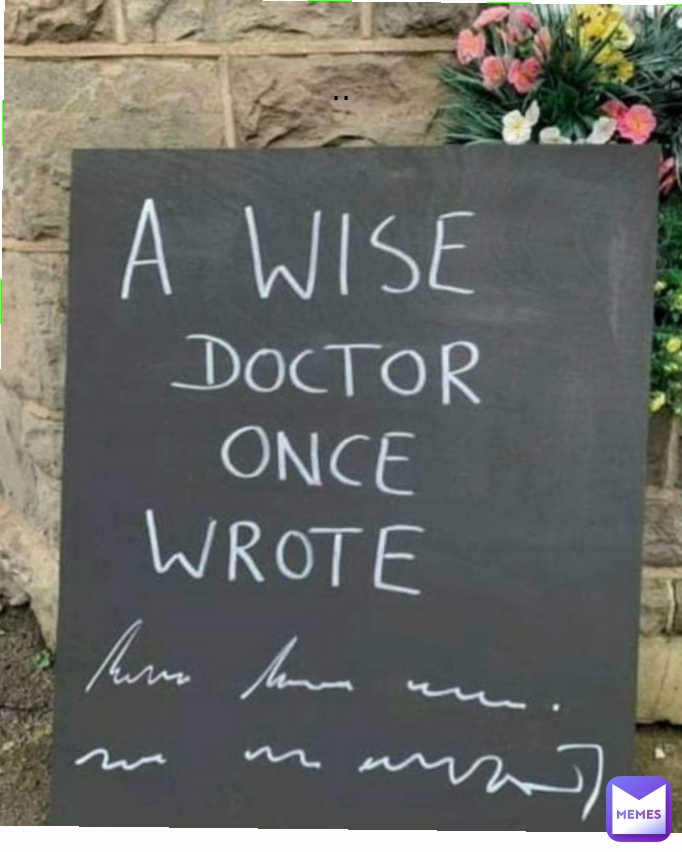 ..
A WISE
DOCTOR
ONCE
WROTE
MEMES